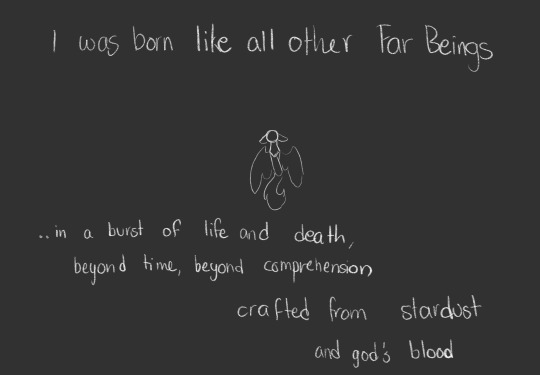 I was born like all other Far Beings
..in a burst of life and death,
beyond time, beyond comprehension
crafted from stardust
and god's blood